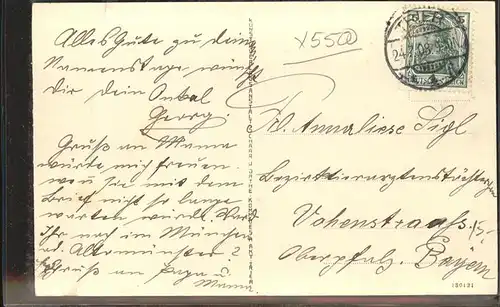 Alles Gute zu dein
Namenstage wünscht
Dir dein Onkel
Georg.
Gruß an Mama
würde mich freuen
wen Sie mit dem
Brief nicht so lange
warten würde. Seid
Ihr noch im München
od. Altomünster?
Gruß an Papa u.
Mama.
x5500
GER
5
24.
Frl. Annaliese Sigl
Bezirkstierarztenstöchterchen
Vohenstrauß.
Oberpfalz. Bayern
130131